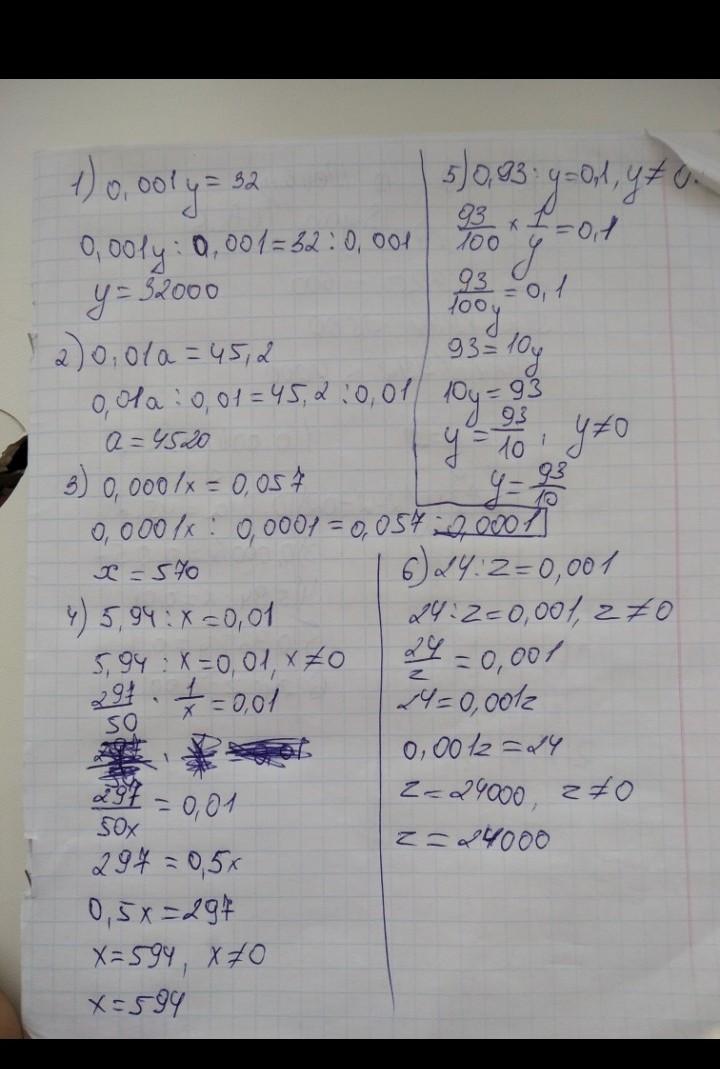 1) 0,001y = 32
0,001y : 0,001 = 32 : 0,001
y = 32000
2) 0,01a = 45,2
0,01a : 0,01 = 45,2 : 0,01
a = 4520
3) 0,0001x = 0,057
0,0001x : 0,0001 = 0,057 : 0,0001
x = 570
4) 5,94 : x = 0,01
5,94 : x = 0,01, x ≠ 0
297/50 · 1/x = 0,01
297/50x = 0,01
297 = 0,5x
0,5x = 297
x = 594, x ≠ 0
x = 594
5) 0,93 : y = 0,1, y ≠ 0.
93/100 × 1/y = 0,1
93/100y = 0,1
93 = 10y
10y = 93
y = 93/10, y ≠ 0
y = 93/10
6) 24 : z = 0,001
24 : z = 0,001, z ≠ 0
24/z = 0,001
24 = 0,001z
0,001z = 24
z = 24000, z ≠ 0
z = 24000